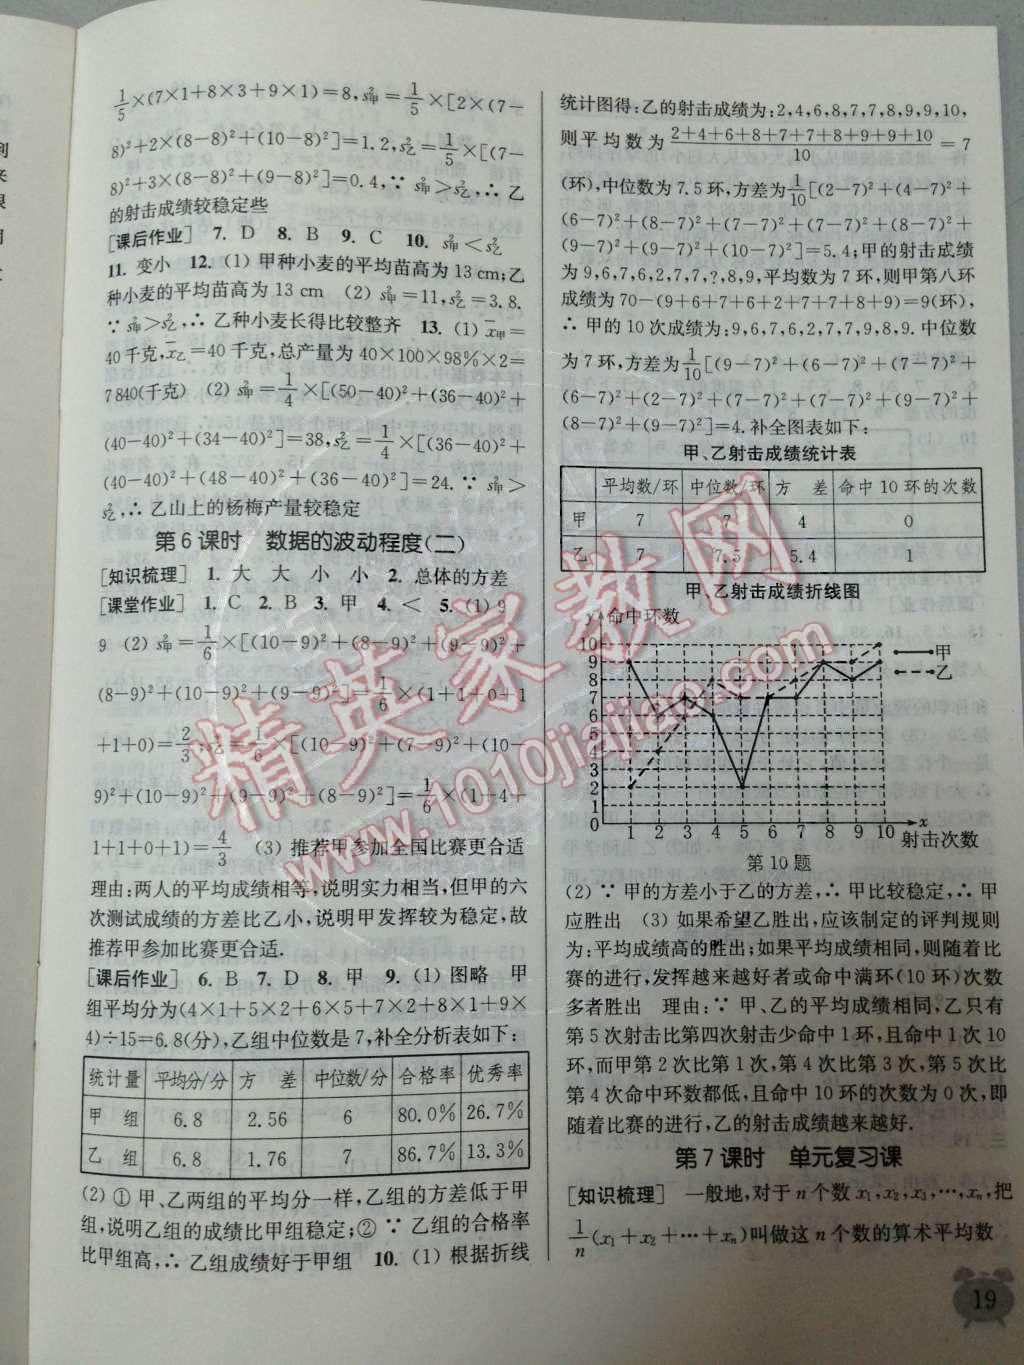 1/5×(7×1+8×3+9×1)=8,s²甲=1/5×[2×(7-
8)²+2×(8-8)²+(10-8)²]=1.2,s²乙=1/5×[(7-
8)²+3×(8-8)²+(9-8)²]=0.4,∵ s²甲>s²乙,∴ 乙
的射击成绩较稳定些
[课后作业] 7. D 8. B 9. C 10. s²甲<s²乙
11. 变小 12. (1) 甲种小麦的平均苗高为 13 cm;乙
种小麦的平均苗高为 13 cm (2) s²甲=11,s²乙=3.8.
∵ s²甲>s²乙,∴ 乙种小麦长得比较整齐 13. (1) x̄甲=
40 千克,x̄乙=40 千克,总产量为 40×100×98%×2=
7 840(千克) (2) s²甲=1/4×[(50-40)²+(36-40)²+
(40-40)²+(34-40)²]=38,s²乙=1/4×[(36-40)²+
(40-40)²+(48-40)²+(36-40)²]=24. ∵ s²甲>
s²乙,∴ 乙山上的杨梅产量较稳定
第 6 课时 数据的波动程度(二)
[知识梳理] 1. 大 大 小 小 2. 总体的方差
[课堂作业] 1. C 2. B 3. 甲 4. < 5. (1) 9
9 (2) s²甲=1/6×[(10-9)²+(8-9)²+(9-9)²+
(8-9)²+(10-9)²+(9-9)²]=1/6×(1+1+0+1
+1+0)=2/3;s²乙=1/6×[(10-9)²+(7-9)²+(10-
9)²+(10-9)²+(9-9)²+(8-9)²]=1/6×(1+4+
1+1+0+1)=4/3 (3) 推荐甲参加全国比赛更合适
理由:两人的平均成绩相等,说明实力相当,但甲的六
次测试成绩的方差比乙小,说明甲发挥较为稳定,故
推荐甲参加比赛更合适.
[课后作业] 6. B 7. D 8. 甲 9. (1) 图略 甲
组平均分为(4×1+5×2+6×5+7×2+8×1+9×
4)÷15=6.8(分),乙组中位数是 7,补全分析表如下:
统计量 平均分/分 方 差 中位数/分 合格率 优秀率
甲 组 6.8 2.56 6 80.0% 26.7%
乙 组 6.8 1.76 7 86.7% 13.3%
(2) ① 甲、乙两组的平均分一样,乙组的方差低于甲
组,说明乙组的成绩比甲组稳定;② ∵ 乙组的合格率
比甲组高,∴ 乙组成绩好于甲组 10. (1) 根据折线
统计图得:乙的射击成绩为:2,4,6,8,7,7,8,9,9,10,
则平均数为(2+4+6+8+7+7+8+9+9+10)/10=7
(环),中位数为 7.5 环,方差为1/10[(2-7)²+(4-7)²+
(6-7)²+(8-7)²+(7-7)²+(7-7)²+(8-7)²+
(9-7)²+(9-7)²+(10-7)²]=5.4;甲的射击成绩
为 9,6,7,6,2,7,7,?,8,9,平均数为 7 环,则甲第八环
成绩为 70-(9+6+7+6+2+7+7+8+9)=9(环),
∴ 甲的 10 次成绩为:9,6,7,6,2,7,7,9,8,9. 中位数
为 7 环,方差为1/10[(9-7)²+(6-7)²+(7-7)²+
(6-7)²+(2-7)²+(7-7)²+(7-7)²+(9-7)²+
(8-7)²+(9-7)²]=4. 补全图表如下:
甲、乙射击成绩统计表
平均数/环 中位数/环 方 差 命中 10 环的次数
甲 7 7 4 0
乙 7 7.5 5.4 1
甲、乙射击成绩折线图
y 命中环数
10
9
8
7
6
5
4
3
2
1
0 1 2 3 4 5 6 7 8 9 10 x
射击次数
甲
乙
第 10 题
(2) ∵ 甲的方差小于乙的方差,∴ 甲比较稳定,∴ 甲
应胜出 (3) 如果希望乙胜出,应该制定的评判规则
为:平均成绩高的胜出;如果平均成绩相同,则随着比
赛的进行,发挥越来越好者或命中满环(10 环)次数
多者胜出 理由:∵ 甲、乙的平均成绩相同,乙只有
第 5 次射击比第四次射击少命中 1 环,且命中 1 次 10
环,而甲第 2 次比第 1 次,第 4 次比第 3 次,第 5 次比
第 4 次命中环数都低,且命中 10 环的次数为 0 次,即
随着比赛的进行,乙的射击成绩越来越好.
第 7 课时 单元复习课
[知识梳理] 一般地,对于 n 个数 x₁,x₂,x₃,⋯,xₙ,把
1/n(x₁+x₂+⋯+xₙ)叫做这 n 个数的算术平均数
19
精英家教网
www.1010jiajiao.com